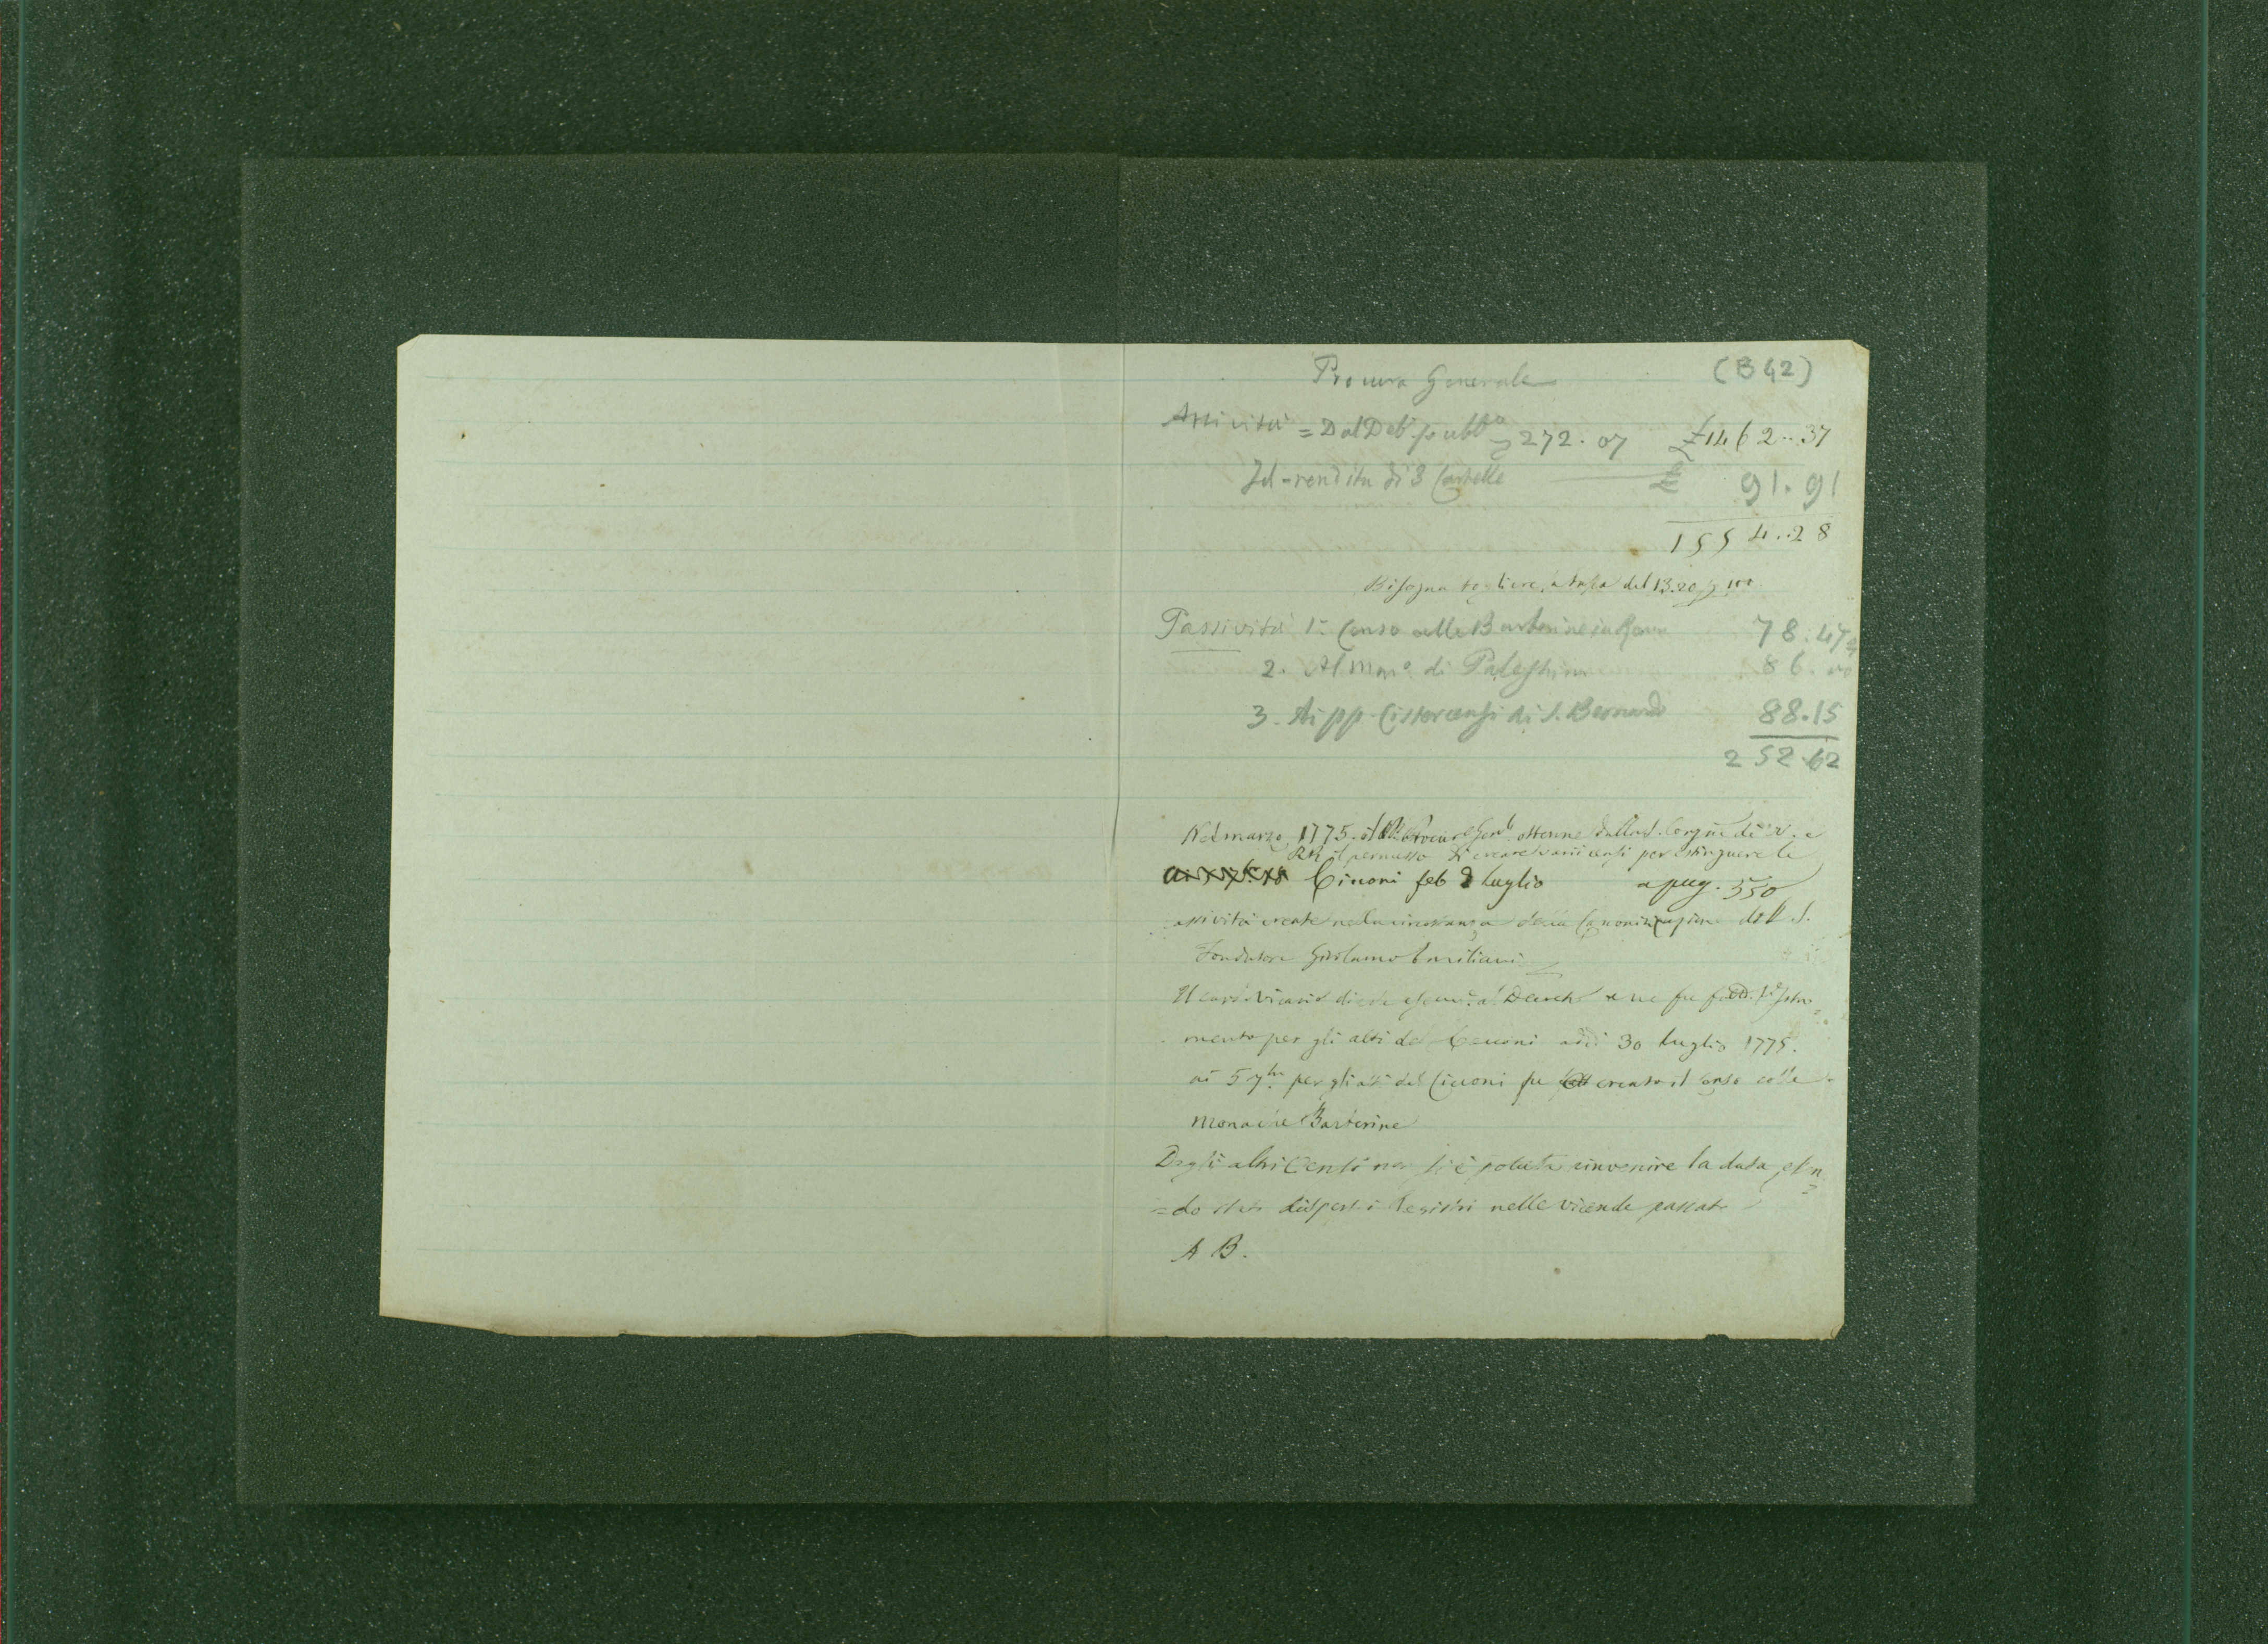 Procura Generale (B 42)
Attività = Dal Deb. pubbº 272.07 £ 1462..37
Id - rendita di 3 Cartelle 91.91
1554..28
Bisogna togliere la tassa del 13.20 p. 100
Passività 1º Censo alle Barberine in Roma 78.47
2. Al Monº di Palestrina 86.00
3. Ai pp. Cistercensi di S. Bernardo 88.15
252.62
Nel marzo 1775. il P. Procure Genle ottenne dalla S. Congne de' V. e
RR il permesso di creare varii censi per estinguere le
Cinoni feb luglio a pag. 550
assività create nella circostanza della Canonizzazione del S.
Fondatore Girolamo Emiliani
Il card. vicario diede al Decreto e ne fu Istru
mento per gli atti del Cinoni adi 30 luglio 1775.
ai 5 per gli atti del Cinoni fu creato il censo colle
monache Barberine
Degli altri Censi non si è potuta rinvenire la data, essen
=do stati dispersi i Registri nelle vicende passate
A B.